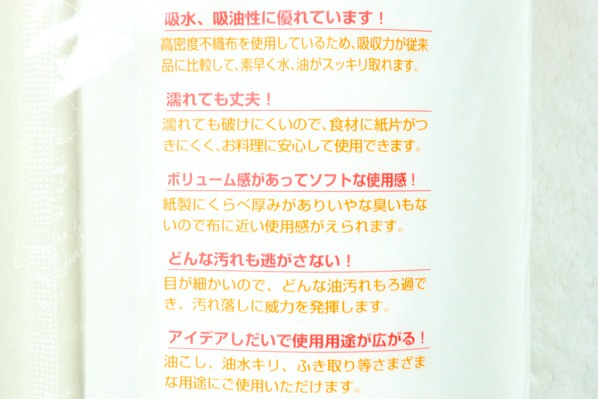 吸水、吸油性に優れています！
高密度不織布を使用しているため、吸収力が従来
品に比較して、素早く水、油がスッキリ取れます。
濡れても丈夫！
濡れても破けにくいので、食材に紙片がつ
きにくく、お料理に安心して使用できます。
ボリューム感があってソフトな使用感！
紙製にくらべ厚みがありいやな臭いもな
いので布に近い使用感がえられます。
どんな汚れも逃がさない！
目が細かいので、どんな油汚れもろ過で
き、汚れ落しに威力を発揮します。
アイデアしだいで使用用途が広がる！
油こし、油水キリ、ふき取り等さまざま
な用途にご使用いただけます。